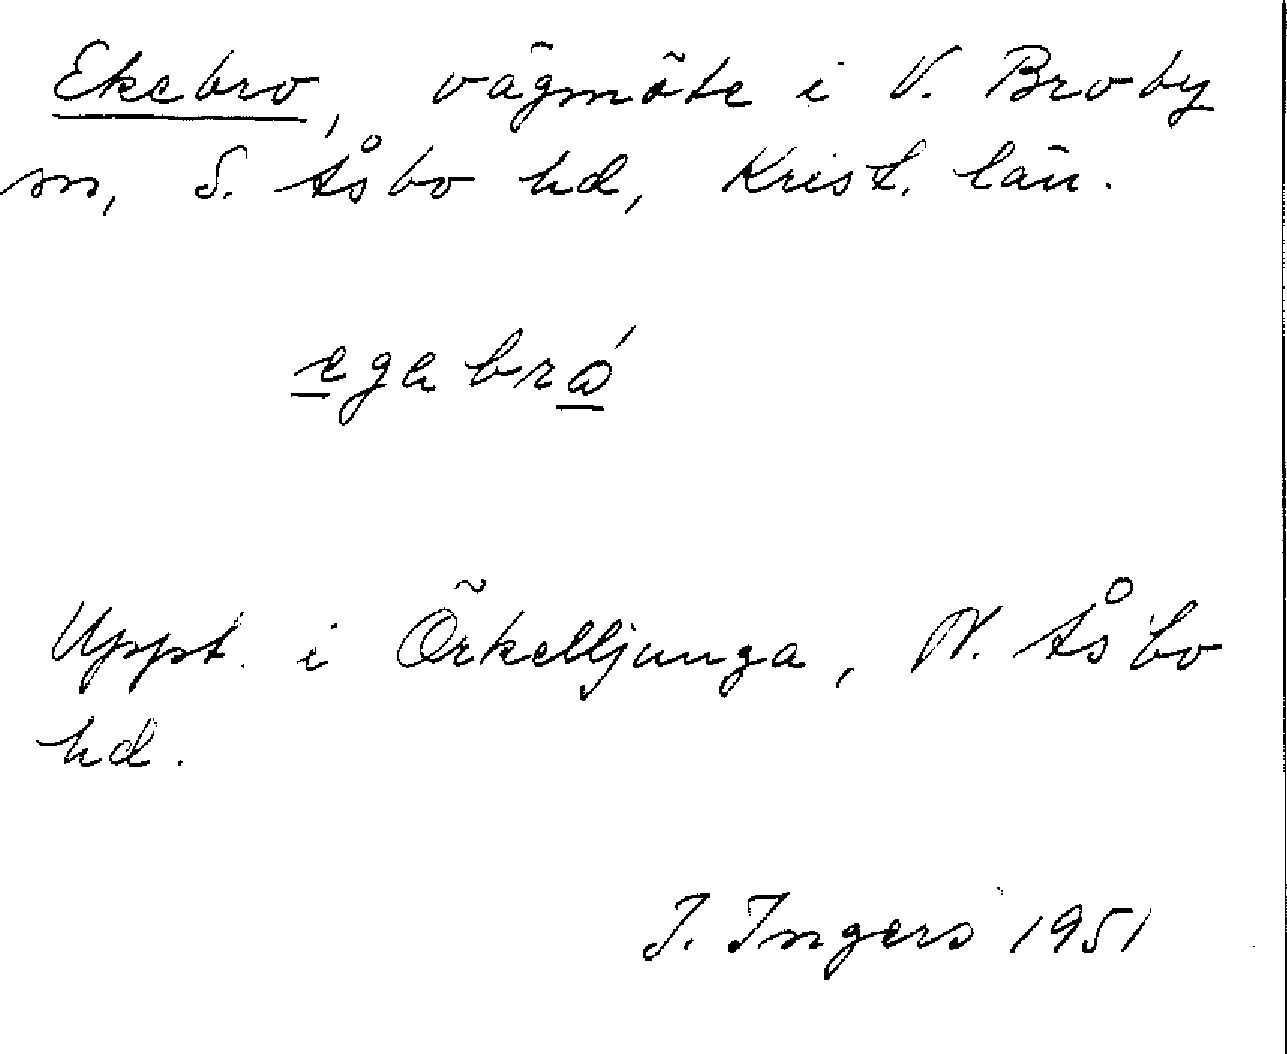 Ekebro, vägmöte i V. Broby
sn, S. Åsbo hd, Krist. län.
egabró
Uppt. i Örkelljunga, N. Åsbo
hd.
I. Ingers 1951